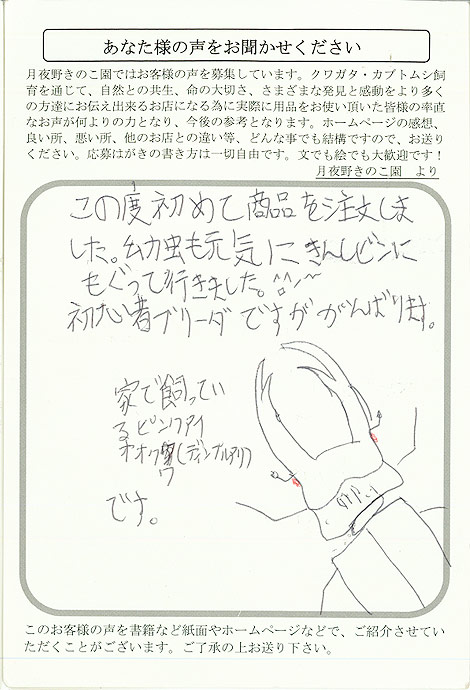 あなた様の声をお聞かせください
月夜野きのこ園ではお客様の声を募集しています。クワガタ・カブトムシ飼
育を通じて、自然との共生、命の大切さ、さまざまな発見と感動をより多く
の方達にお伝え出来るお店になる為に実際に用品をお使い頂いた皆様の率直
なお声が何よりの力となり、今後の参考となります。ホームページの感想、
良い所、悪い所、他のお店との違い等、どんな事でも結構ですので、お送り
ください。応募はがきの書き方は一切自由です。文でも絵でも大歓迎です！
月夜野きのこ園　より
この度初めて商品を注文しま
した。幼虫も元気にきんしビンに
もぐって行きました。^^
初心者ブリーダですががんばります。
家で飼ってい
るピンクアイ
オオクワ(ディンプルアリ)
です。
このお客様の声を書籍など紙面やホームページなどで、ご紹介させてい
ただくことがございます。ご了承の上お送り下さい。